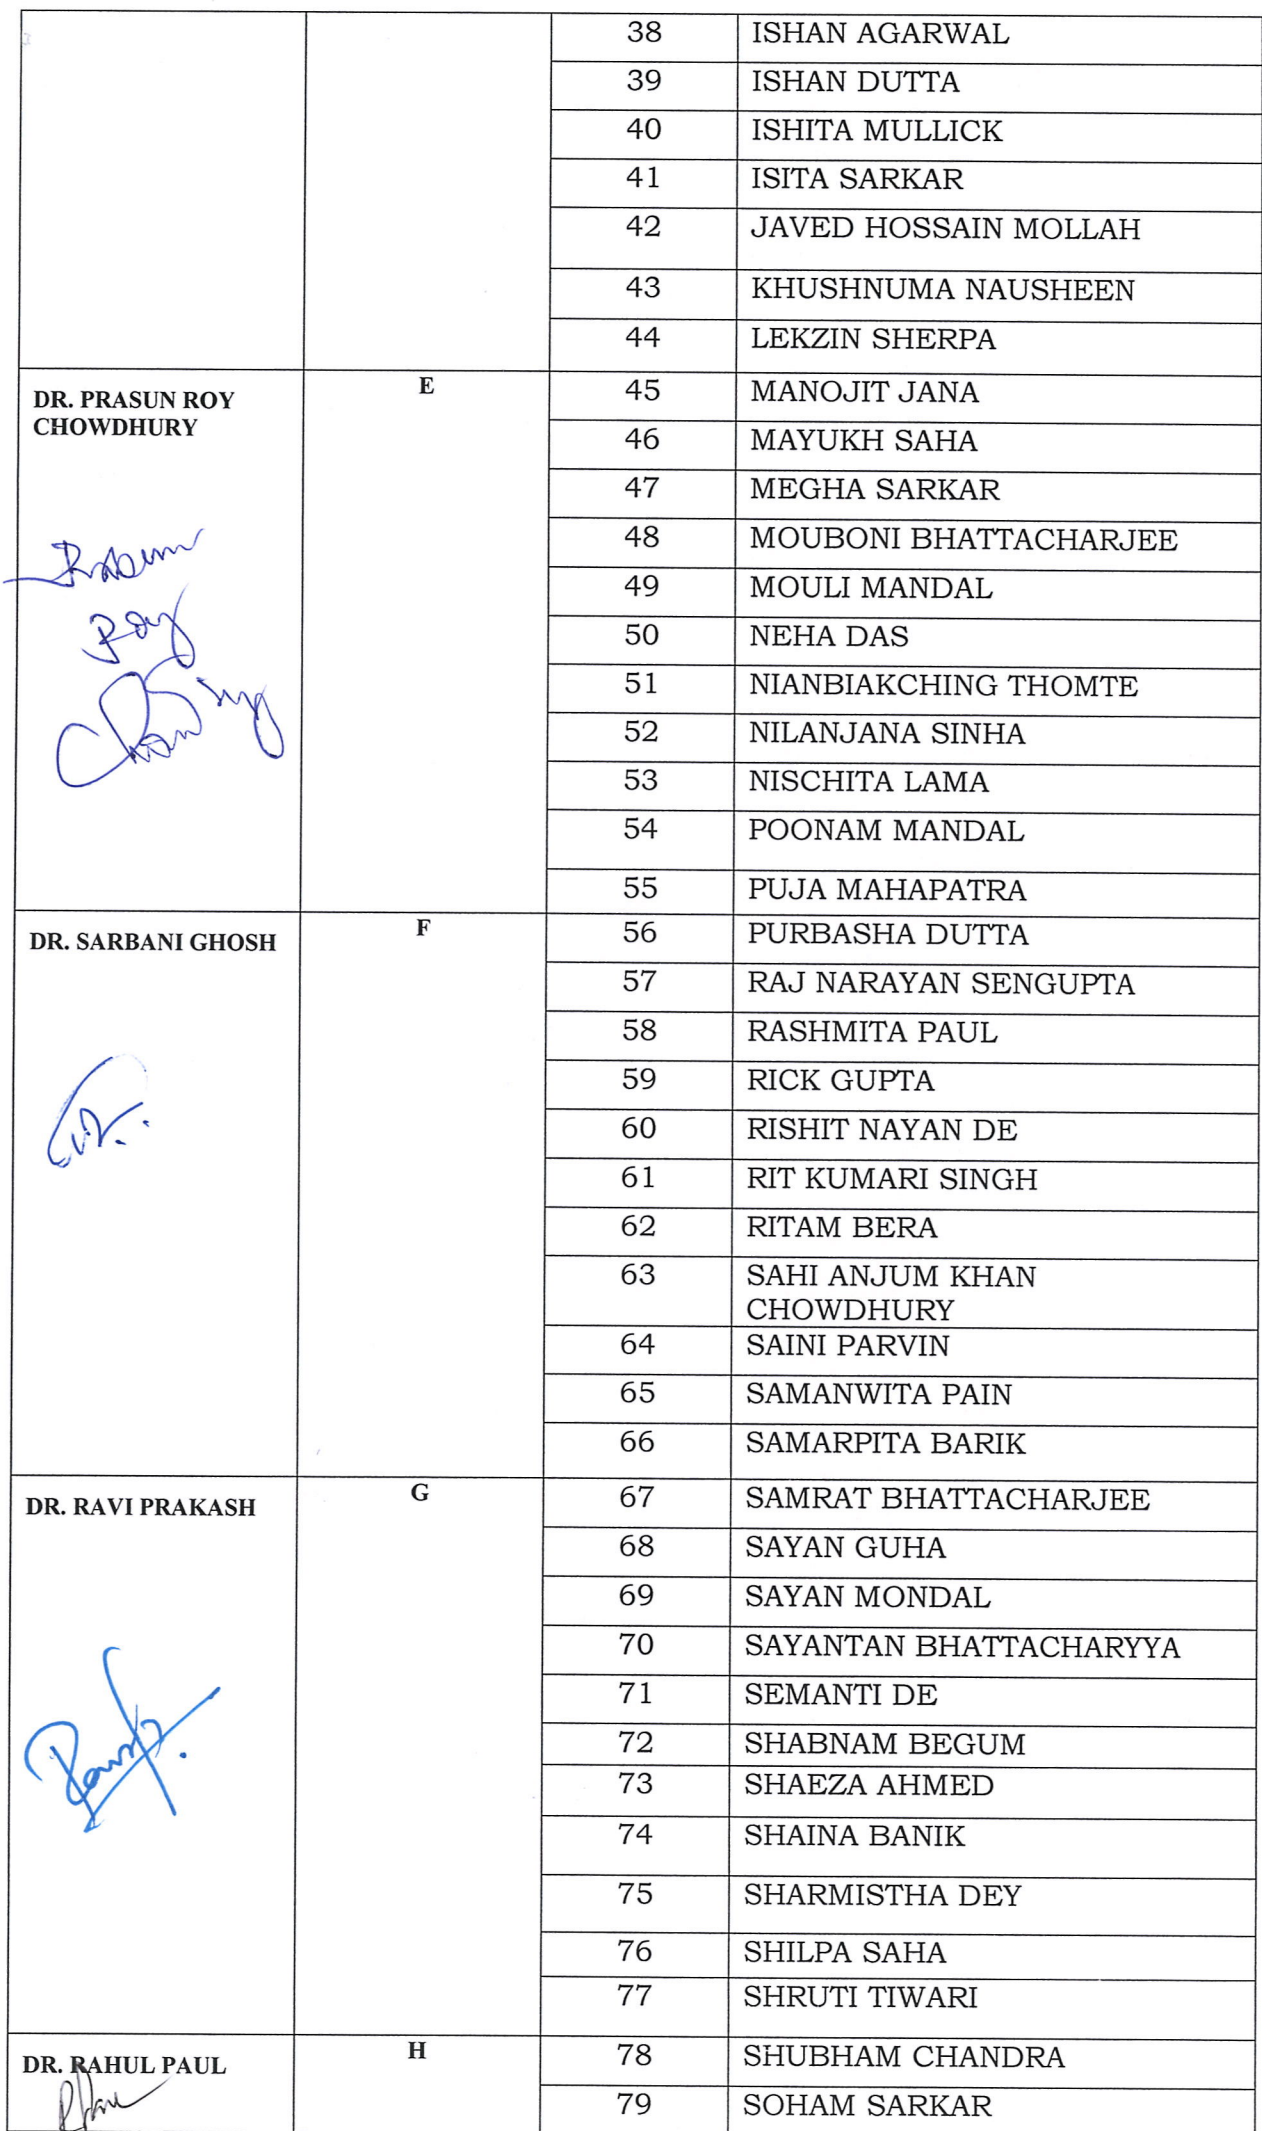 38 ISHAN AGARWAL
39 ISHAN DUTTA
40 ISHITA MULLICK
41 ISITA SARKAR
42 JAVED HOSSAIN MOLLAH
43 KHUSHNUMA NAUSHEEN
44 LEKZIN SHERPA
DR. PRASUN ROY CHOWDHURY E 45 MANOJIT JANA
46 MAYUKH SAHA
47 MEGHA SARKAR
48 MOUBONI BHATTACHARJEE
Prasun
49 MOULI MANDAL
Roy
50 NEHA DAS
51 NIANBIAKCHING THOMTE
Chowdhury
52 NILANJANA SINHA
53 NISCHITA LAMA
54 POONAM MANDAL
55 PUJA MAHAPATRA
DR. SARBANI GHOSH F 56 PURBASHA DUTTA
57 RAJ NARAYAN SENGUPTA
58 RASHMITA PAUL
59 RICK GUPTA
60 RISHIT NAYAN DE
61 RIT KUMARI SINGH
62 RITAM BERA
63 SAHI ANJUM KHAN
CHOWDHURY
64 SAINI PARVIN
65 SAMANWITA PAIN
66 SAMARPITA BARIK
DR. RAVI PRAKASH G 67 SAMRAT BHATTACHARJEE
68 SAYAN GUHA
69 SAYAN MONDAL
70 SAYANTAN BHATTACHARYYA
71 SEMANTI DE
72 SHABNAM BEGUM
73 SHAEZA AHMED
74 SHAINA BANIK
75 SHARMISTHA DEY
76 SHILPA SAHA
77 SHRUTI TIWARI
DR. RAHUL PAUL H 78 SHUBHAM CHANDRA
79 SOHAM SARKAR